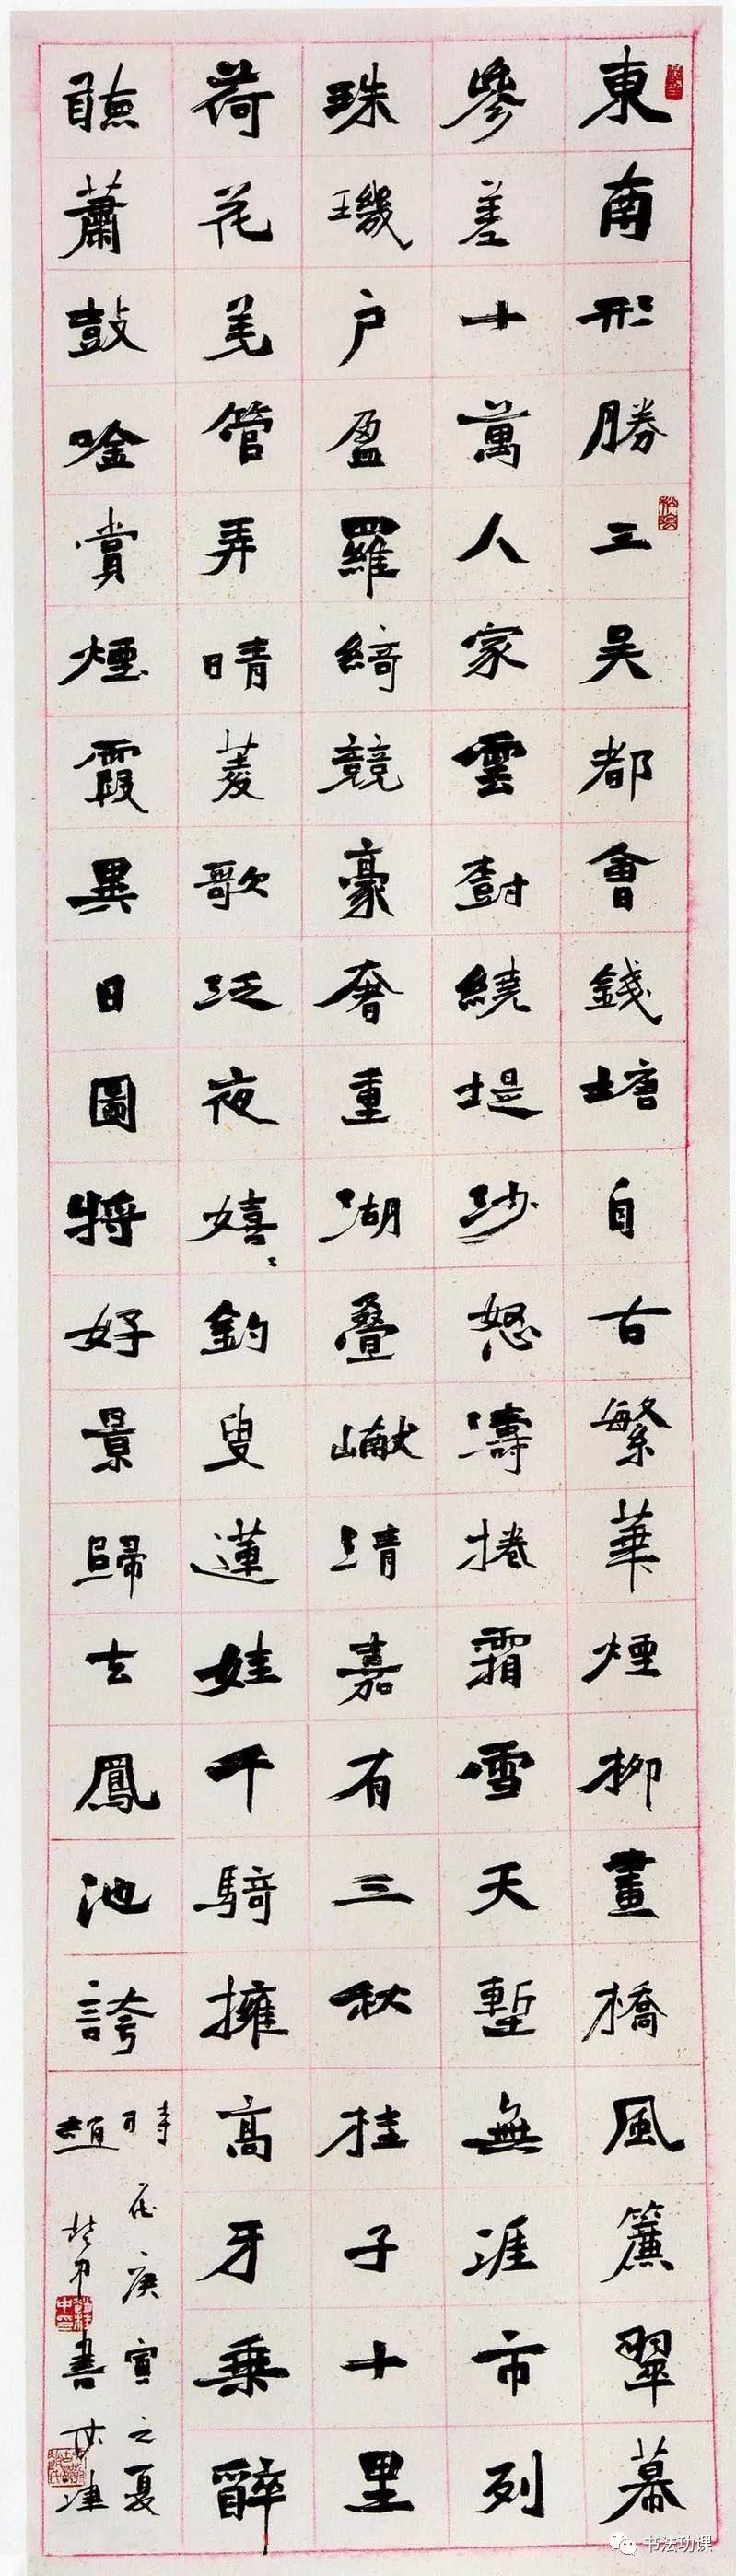 東南形勝三吳都會錢塘自古繁華煙柳畫橋風簾翠幕
參差十萬人家雲樹繞堤沙怒濤捲霜雪天塹無涯市列
珠璣戶盈羅綺競豪奢重湖疊巘清嘉有三秋桂子十里
荷花羌管弄晴菱歌泛夜嬉〻釣叟蓮娃千騎擁高牙乘醉
聽蕭鼓唫賞煙霞異日圖將好景歸去鳳池誇
時在庚寅之夏
趙書於津
书法功课